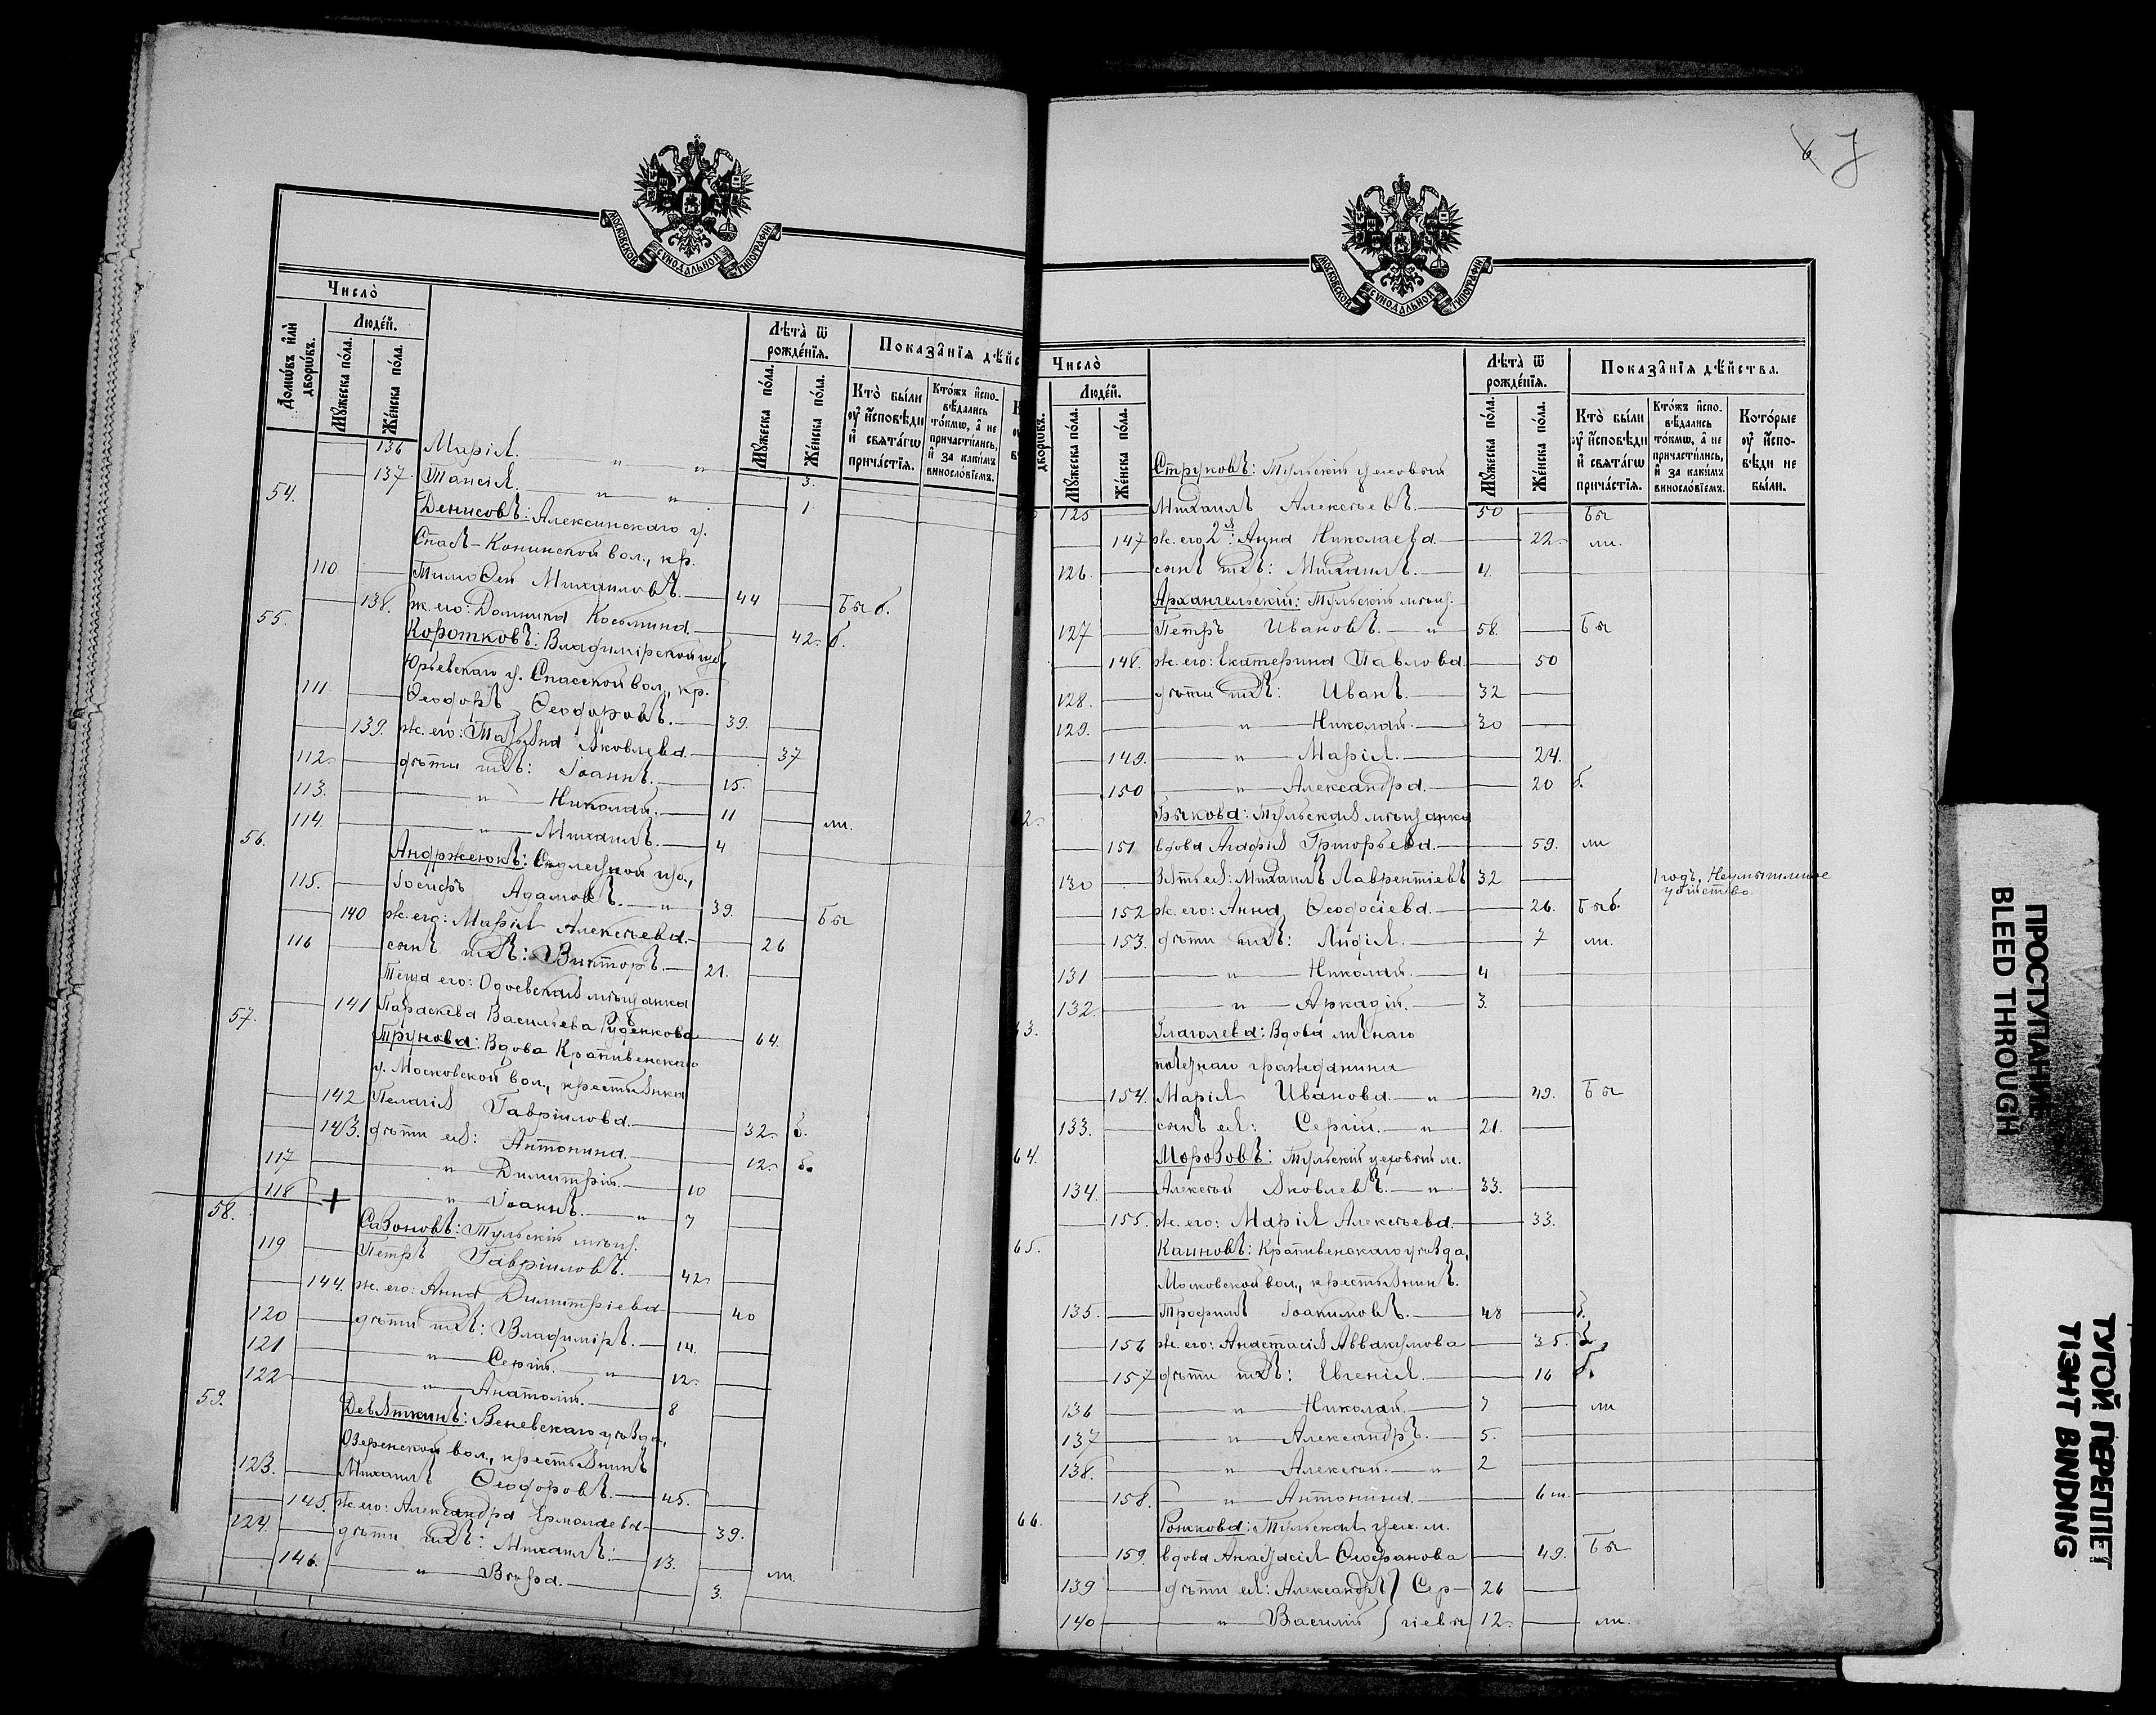 МОСКОВСКОЙ СѴНОДАЛЬНОЙ ТИПОГРАФІИ
Число̀
Домѡвъ и҆лѝ дворѡвъ.
Людей.
Мꙋжеска по́ла.
Же́нска по́ла.
Лѣта̀ ѿ рожде́нїѧ.
Мꙋжеска по́ла.
Же́нска по́ла.
Показа̑нїѧ дѣ́йс
Кто̀ бы́ли ᲂу҆̀ и҆сповѣди и҆ свѧта́гѡ прича́стїѧ.
Кто́жъ и҆спо- вѣ́дались то́кмѡ, а҆ не причасти́лись, и҆ за каки́мъ виносло́вїемъ.
136 Марія. — " — " 3.
137 Таисія. — " — " 1
54. Денисовъ: Алексинскаго у.
Спасъ-Конинской вол., кр.
110 Тимоѳей Михаиловъ. — 44 Бы
138. ж. его: Домника Косьмина — 42. б.
55. Коротковъ: Владимірской губ.
Юрьевскаго у. Спасской вол., кр.
111 Ѳеодоръ Ѳеодоровъ. — 39.
139. ж. его: Татьяна Яковлева — 37
112. дѣти ихъ: Іоаннъ. — 15.
113. " — Николай. — 11
114. " — Михаилъ. — 4 ли.
56. Андржеюкъ: Седлецкой губ.,
115. Іосифъ Адамовъ. — " 39.
140 ж. его: Марія Алексѣева. — 26 Бы
116 сынъ ихъ: Викторъ. — 21.
Теща его: Одоевская мѣщанка
141 Параскева Васильева Руденкова 64.
57. Трунова: Вдова Крапивенскаго
у. Московской вол., крестьянка
142 Пелагія Гавріилова. — 32. б.
143. дѣти ея: Антонина. — 12. б.
117 " — Димитрій. — 10
118 + " — Іоаннъ. — " 7
58. Сазоновъ: Тульскій мѣщ.
119 Петръ Гавріиловъ. — 42
144. ж. его: Анна Димитріева — 40
120 дѣти ихъ: Владиміръ. — 14.
121 " — Сергій. — " 12.
122 " — Анатолій. — 8
59. Девяткинъ: Веневскаго уѣзда,
Озеренской вол., крестьянинъ
123. Михаилъ Ѳеодоровъ. — 45.
145. ж. его: Александра Ермолаева — 39.
124. дѣти ихъ: Михаилъ: — 13.
146. " — Вѣра. — 3. ли.
6 7
МОСКОВСКОЙ СѴНОДАЛЬНОЙ ТИПОГРАФІИ
Число̀
дворѡвъ.
Людей.
Мꙋжеска по́ла.
Же́нска по́ла.
Лѣта̀ ѿ рожде́нїѧ.
Мꙋжеска по́ла.
Же́нска по́ла.
Показа̑нїѧ дѣ́йства.
Кто̀ бы́ли ᲂу҆̀ и҆сповѣди и҆ свѧта́гѡ прича́стїѧ.
Кто́жъ и҆спо- вѣ́дались то́кмѡ, а҆ не причасти́лись, и҆ за каки́мъ виносло́вїемъ.
Кото́рые ᲂу҆̀ и҆спо- вѣди не бы́ли.
Струковъ: Тульскій цеховый
125 Михаилъ Алексѣевъ. — 50 Бы
147 ж. его 2я Анна Николаева. — 22. ли.
126. сынъ ихъ: Михаилъ. — 4.
Архангельскій: Тульскій мѣщ.
127 Петръ Ивановъ. — " 58. Бы
148. ж. его: Екатерина Павлова. — 50
128. дѣти ихъ: Иванъ. — 32
129. " — Николай. — 30
149. " — Марія. — 24.
150 " — Александра. — 20 б.
2. Быкова: Тульская мѣщанка
151 вдова Агафія Григорьева. — 59. ли
130 Зять ея: Михаилъ Лаврентіевъ 32 1 годъ. Неумышленное убійство.
152 ж. его: Анна Ѳеодосіева. — 26. Бы б.
153. дѣти ихъ: Лидія. — 7 ли.
131 " — Николай. — 4
132. " — Аркадій. — 3.
3. Глаголева: Вдова личнаго
почетнаго гражданина
154. Марія Иванова. — " 49. Бы
133. сынъ ея: Сергій. — " 21.
64. Морозовъ: Тульскій цеховый м.
134. Алексѣй Яковлевъ. — " 33.
155. ж. его: Марія Алексѣева. — 33.
65. Каиновъ: Крапивенскаго уѣзда,
Московской вол., крестьянинъ.
135. Трофимъ Іоакимовъ. — 48 б.
156 ж. его: Анастасія Аввакумова — 35. б.
157 дѣти ихъ: Евгенія. — 16 б.
136 " — Николай. — 7 ли
137 " — Александръ. — 5.
138. " — Алексѣй. — " 2
158. " — Антонина. — 6 м.
66. Рожкова: Тульская цех. м.
159. вдова Анастасія Ѳеофанова — 49. Бы
139 дѣти ея: Александръ } Сер- 26
140 " — Василій } гіевы 12. ли.
ПРОСТУПАНИЕ
BLEED THROUGH
ТУГОЙ ПЕРЕПЛЕТ
TIGHT BINDING